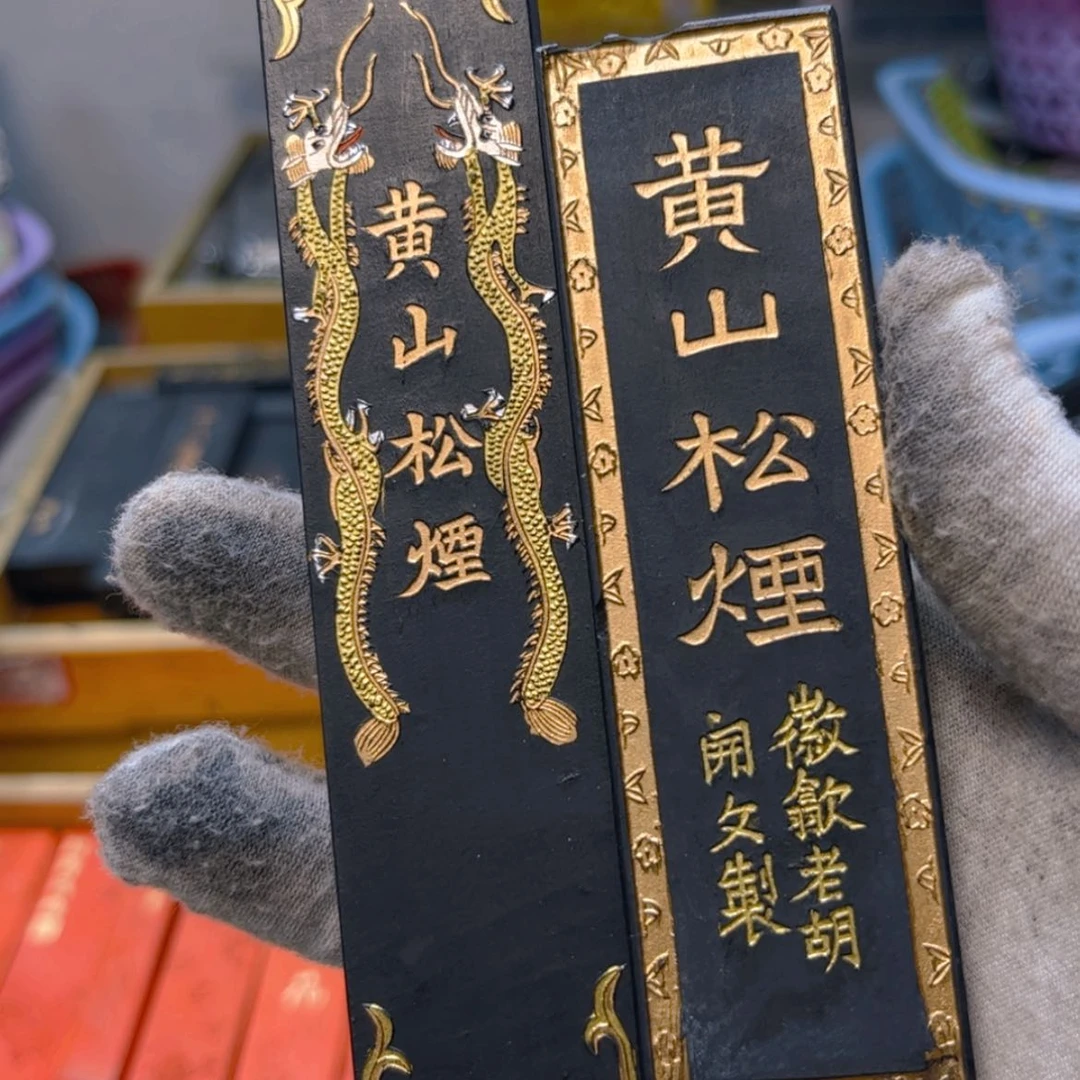 黄山松煙
黄山松煙
徽歙老胡
開文製